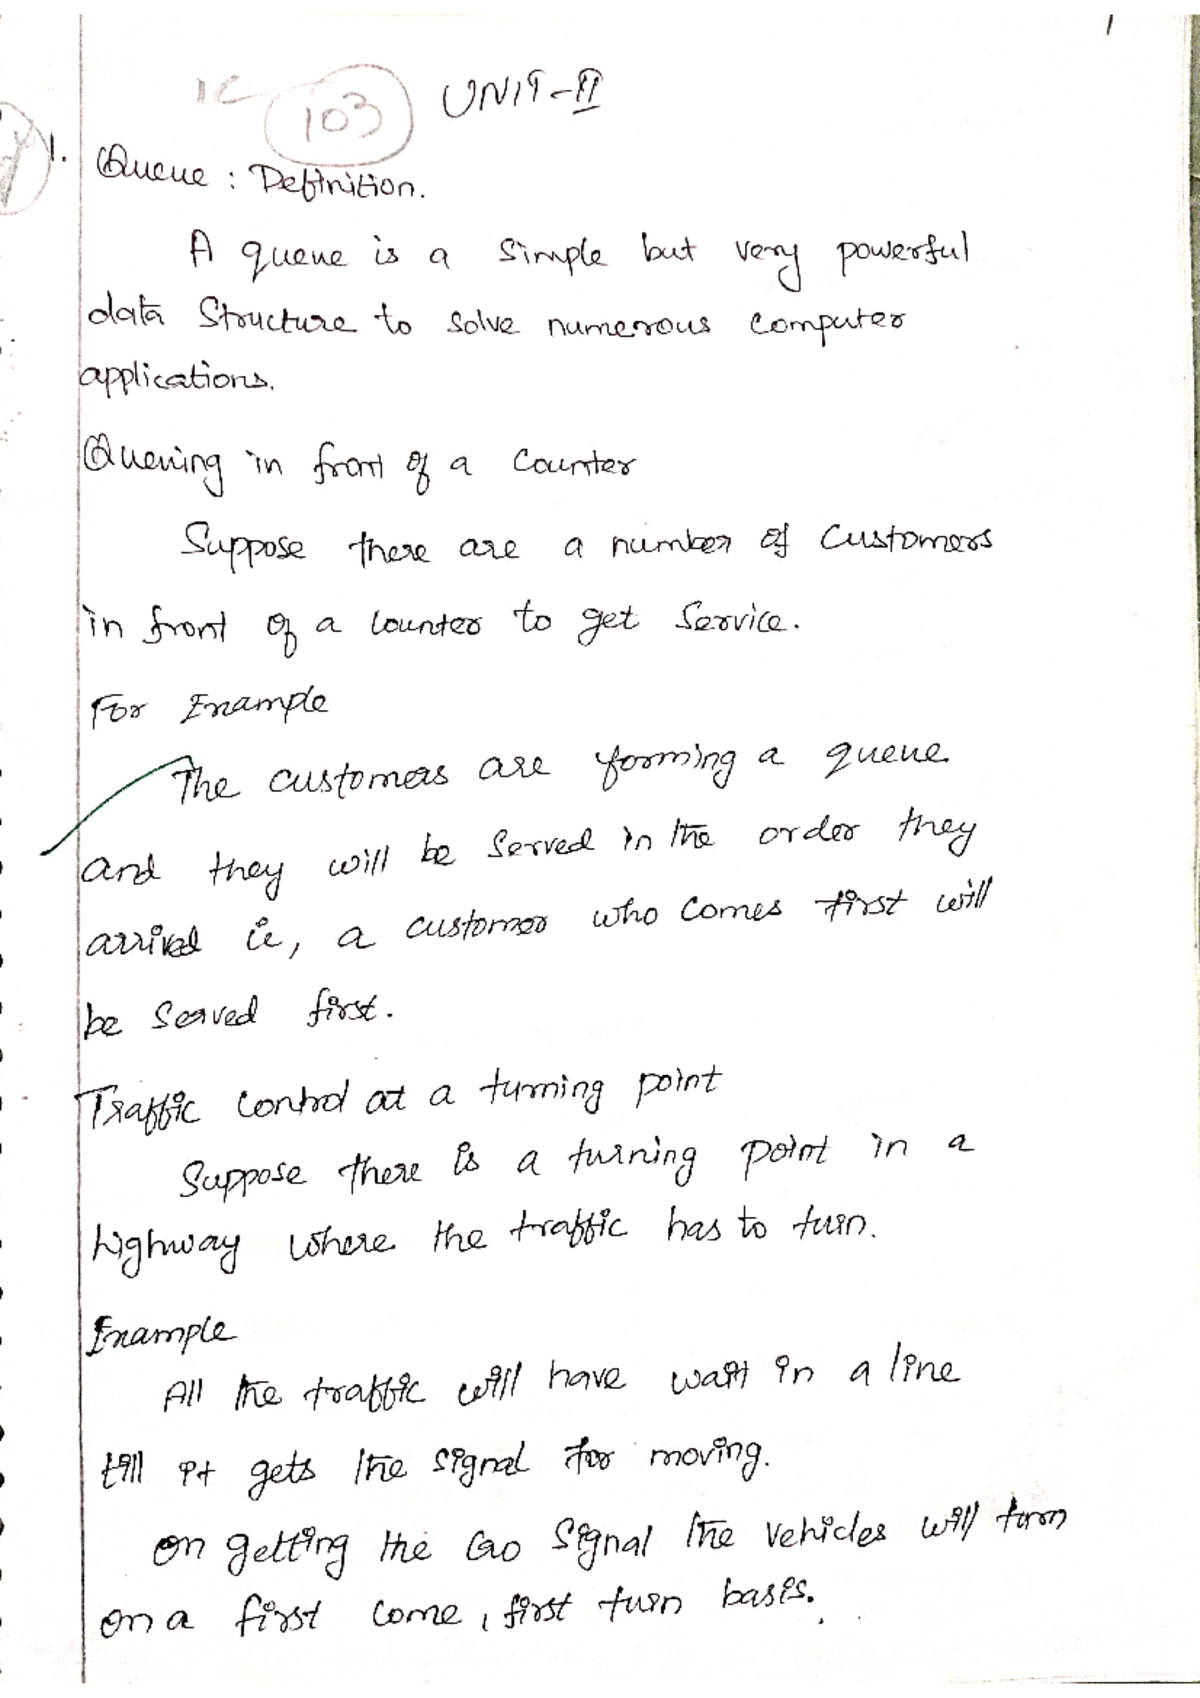 1
1C
103
UNIT-II
1. Queue : Definition.
A queue is a simple but very powerful
data Structure to solve numerous computer
applications.
Queuing in front of a Counter
Suppose there are a number of Customers
in front of a counter to get Service.
For Example
The customers are forming a queue
and they will be Served in the order they
arrival ie, a customer who comes first will
be Served first.
Traffic control at a turning point
Suppose there is a turning point in a
highway where the traffic has to turn.
Example
All the traffic will have wait in a line
till it gets the signal for moving.
on getting the Go Signal the vehicles will turn
on a first come, first turn basis.